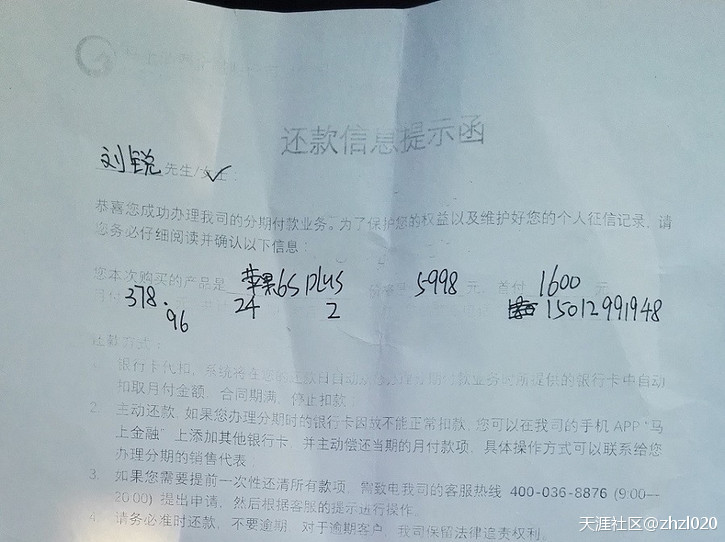 还款信息提示函
刘锐 先生/女士
恭喜您成功办理我司的分期付款业务。为了保护您的权益以及维护好您的个人征信记录，请
您务必仔细阅读并确认以下信息：
您本次购买的产品是 苹果6S plus 5998 元，首付 1600 元
378.96 24 2 15012991948
还款方式：
银行卡代扣，系统将在您的还款日自动从您办理分期付款业务时所提供的银行卡中自动
扣取月付金额，合同期满，停止扣款
2. 主动还款，如果您办理分期时的银行卡因故不能正常扣款，您可以在我司的手机APP“马
上金融”上添加其他银行卡，并主动偿还当期的月付款项，具体操作方式可以联系给您
办理分期的销售代表
3. 如果您需要提前一次性还清所有款项，需致电我司的客服热线 400-036-8876 (9:00—
20:00) 提出申请，然后根据客服的提示进行操作。
4. 请务必准时还款，不要逾期，对于逾期客户，我司保留法律追责权利。
天涯社区@zhzl020